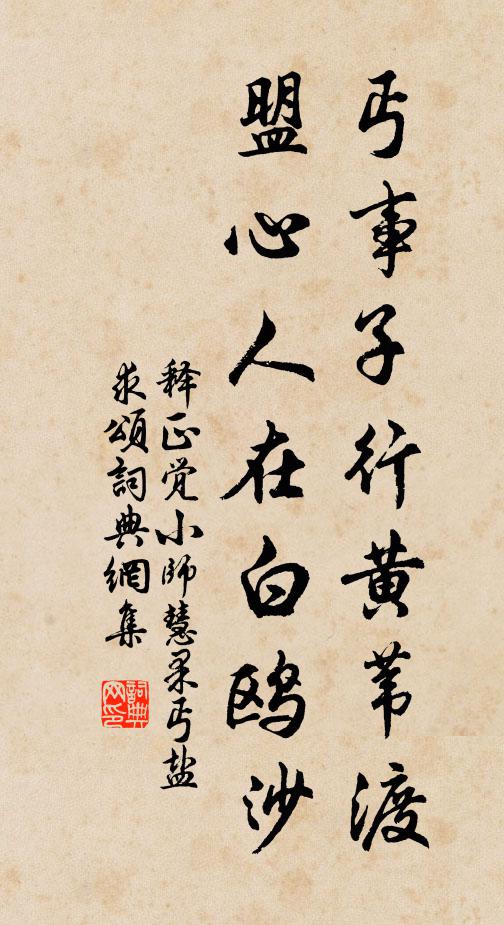 丐事子行黄苇渡
盟心人在白鸥沙
释正觉小师慧杲丐盐
求颂詞典網集
詞典网印